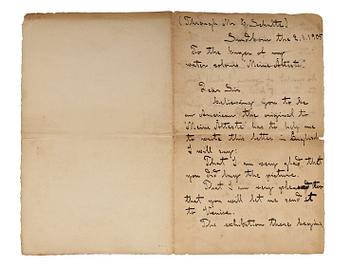 (Through Mr G. Schultz)
Sundborn the 2.1.1905
To the buyer of my
water colour "Meine Älteste".
Dear Sir
believing you to be
an American the original to
"Meine Älteste" has to help me
to write this letter in English
I will say:
That I am very glad that
you did buy the picture.
That I am very glad too
that you will let me send it
to Venice.
The exhibition there begins